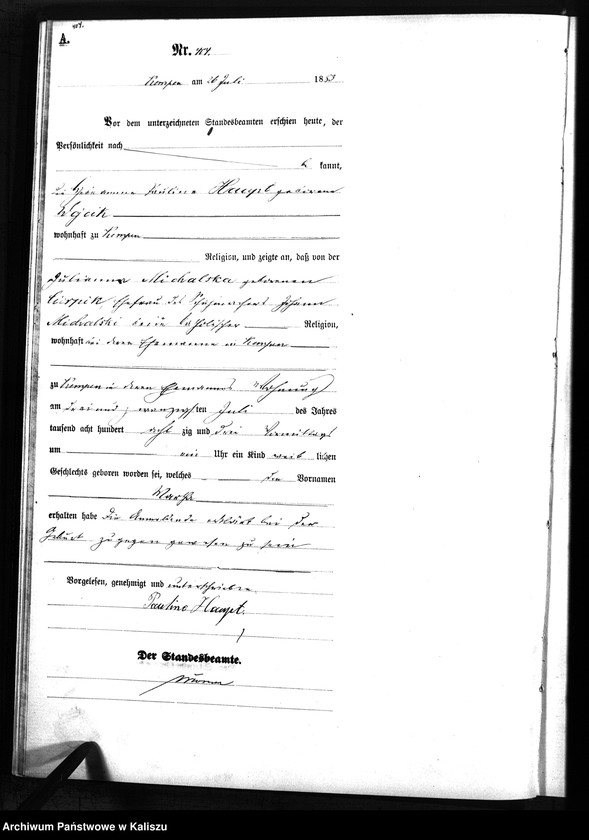 A.
Nr.
Kempen am 26 Juli 1883
Vor dem unterzeichneten Standesbeamten erschien heute, der
Persönlichkeit nach
kannt,
die Hebamme Paulina Haupt geborene
Wojcik
wohnhaft zu Kempen
Religion, und zeigte an, daß von der
Julianna Michalska geborenen
Ehefrau des Schuhmachers Johann
Michalski beide katholischer Religion,
wohnhaft bei deren Ehemanne in Kempen
zu Kempen in deren Ehemannes Wohnung
am drei und zwanzigsten Juli des Jahres
tausend acht hundert acht zig und drei Vormittags
um ein Uhr ein Kind weib lichen
Geschlechts geboren worden sei, welches den Vornamen
erhalten habe Die Anmeldende erklärt bei der
Geburt zugegen gewesen zu sein
Vorgelesen, genehmigt und unterschrieben
Pauline Haupt.
Der Standesbeamte.
Archiwum Państwowe w Kaliszu